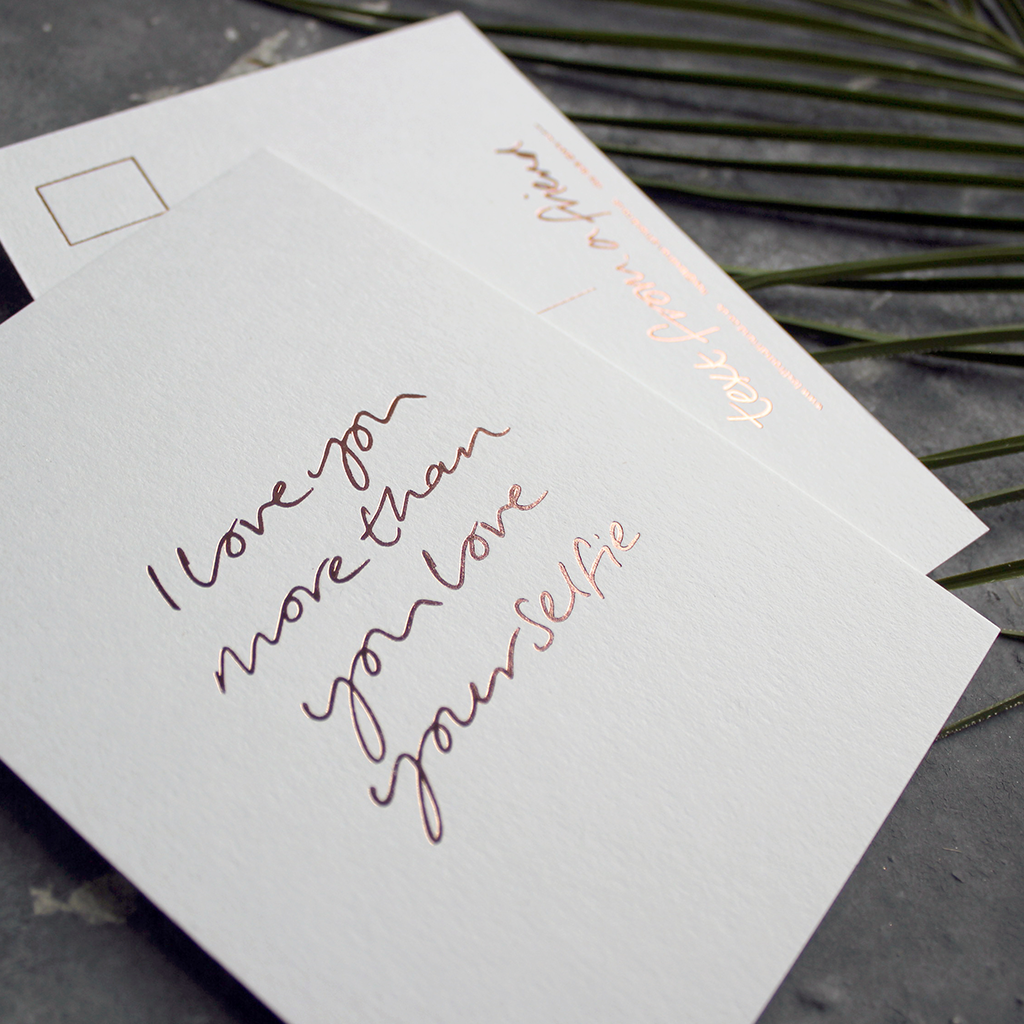 I love you
more than
you love
yourselfie
text from a friend